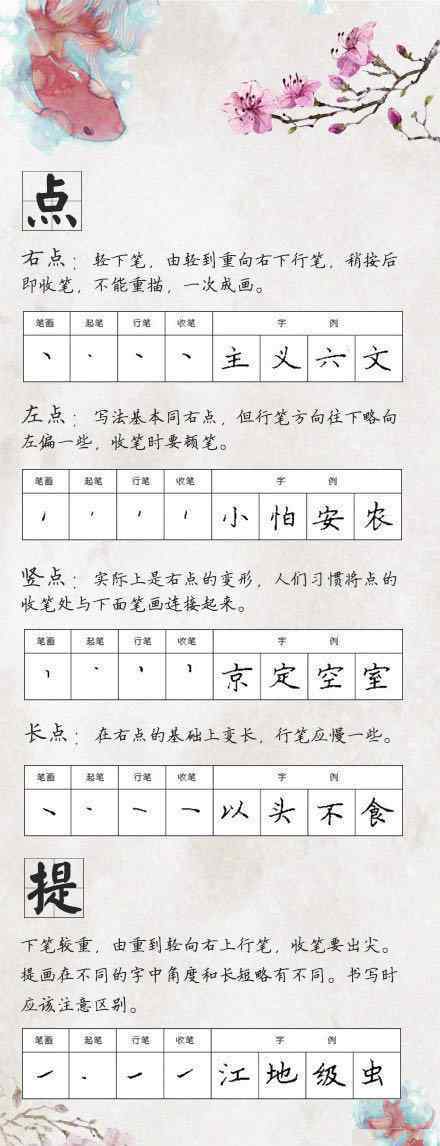 点
右点：轻下笔，由轻到重向右下行笔，稍按后
即收笔，不能重描，一次成画。
笔画 起笔 行笔 收笔 字 例
主 义 六 文
左点：写法基本同右点，但行笔方向往下略向
左偏一些，收笔时要顿笔。
笔画 起笔 行笔 收笔 字 例
小 怕 安 农
竖点：实际上是右点的变形，人们习惯将点的
收笔处与下面笔画连接起来。
笔画 起笔 行笔 收笔 字 例
京 定 空 室
长点：在右点的基础上变长，行笔应慢一些。
笔画 起笔 行笔 收笔 字 例
以 头 不 食
提
下笔较重，由重到轻向右上行笔，收笔要出尖。
提画在不同的字中角度和长短略有不同。书写时
应该注意区别。
笔画 起笔 行笔 收笔 字 例
江 地 级 虫